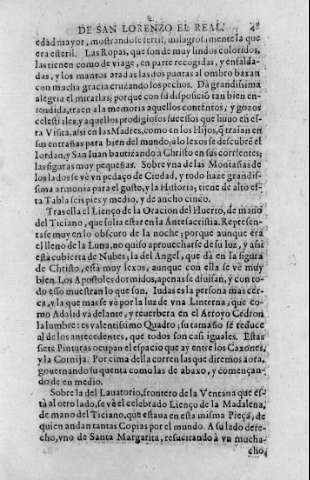 DE SAN LORENZO EL REAL. 48
edad mayor, mostrandose fertil, milagrosamente la que
era esteril. Las Ropas, que son de muy lindos coloridos,
las tienen como de viage, en parte recogidas, y enfalda-
das, y los mantos atadas las dos puntas al ombro baxan
con mucha gracia cruzando los pechos. Dà grandissima
alegria el mirarlas; porque con su disposiciõ tan bien en-
tendida, traen a la memoria aquellos contentos, y gozos
celestiales, y aquellos prodigiosos sucessos que huuo en es-
ta Visita, assi en las Madres, como en los Hijos, q̃ traian en
sus entrañas para bien del mundo; alo lexos se descubre el
Iordan, y San Iuan bautizando à Christo en sus corrientes,
las figuras muy pequeñas. Sobre vna de las Montañas de
los lados se vè vn pedaço de Ciudad, y todo haze grandis-
sima armonia para el gusto, y la Historia; tiene de alto es-
ta Tabla seis pies y medio, y de ancho cinco.
Tras ella el Lienço de la Oracion del Huerto, de mano
del Ticiano, que solia estar en la Antesacristia. Represen-
tase muy en lo obscuro de la noche; porque aunque era
el lleno de la Luna, no quiso aprouecharse de su luz, y assi
està cubierta de Nubes; la del Angel, que dà en la figura
de Christo, està muy lexos, aunque con ella se vè muy
bien. Los Apostoles dormidos, apenas se diuisan, y con to-
do esso muestran lo que son. Iudas es la persona mas cer-
ca, y la que mas se vè por la luz de vna Linterna, que co-
mo Adalid và delante, y reuerbera en el Arroyo Cedron
la lumbre: es valentissimo Quadro; su tamaño se reduce
al de los antecedentes, que todos son casi iguales. Estas
siete Pinturas ocupan el espacio que ay entre los Caxones,
y la Cornija. Por cima della corren las que diremos aora,
gouernando su quenta como las de abaxo, y començan-
do de en medio.
Sobre la del Lauatorio, frontero de la Ventana que es-
tà al otro lado, se vè el celebrado Lienço de la Madalena,
de mano del Ticiano, que estaua en esta misma Pieça, de
quien andan tantas Copias por el mundo. A su lado dere-
cho, vno de Santa Margarita, resucitando à vn mucha-
cho,